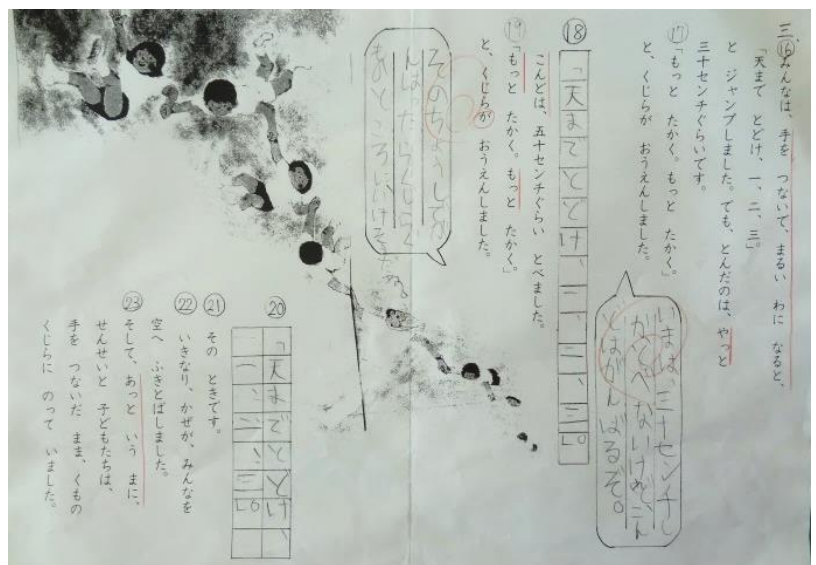 三、
⑯みんなは、手を つないで、まるい わに なると、
「天まで とどけ、一、二、三。」
と ジャンプしました。でも、とんだのは、やっと
三十センチぐらいです。
⑰「もっと たかく。もっと たかく。」
と、くじらが おうえんしました。
いまは、三十センチし
かとべないけれど、こん
どはがんばるぞ。
⑱
「天までとどけ、一、二、三。」
こんどは、五十センチぐらい とべました。
⑲「もっと たかく。もっと たかく。」
と、くじらが おうえんしました。
そのちょうしでが
んばったらくもの
ところにいけ
⑳
「天までとどけ、
一、二、三。」
㉑その ときです。
㉒いきなり、かぜが、みんなを
空へ ふきとばしました。
㉓そして、あっと いう まに、
せんせいと 子どもたちは、
手を つないだ まま、くもの
くじらに のって いました。